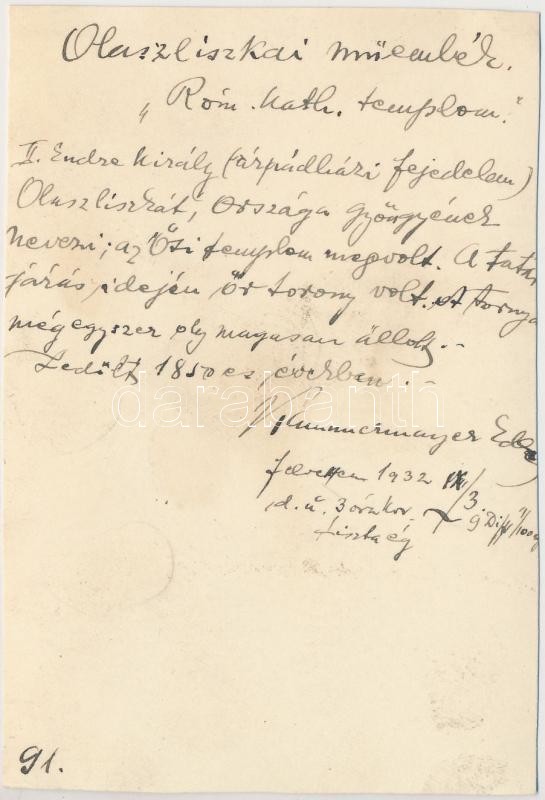 Olaszliszkai műemlék.
"Róm. Kath. templom."
II. Endre Király (árpádházi fejedelem)
Olaszliszkát, Országa gyöngyének
nevezi; az Ősi templom megvolt. A tatár
járás idején őr torony volt. A tornya
mégegyszer oly magasan állott.-
Ledőlt 1850 es, években.-
felvettem 1932
d. u. 3 órakor
tiszta ég
91.
darabanth